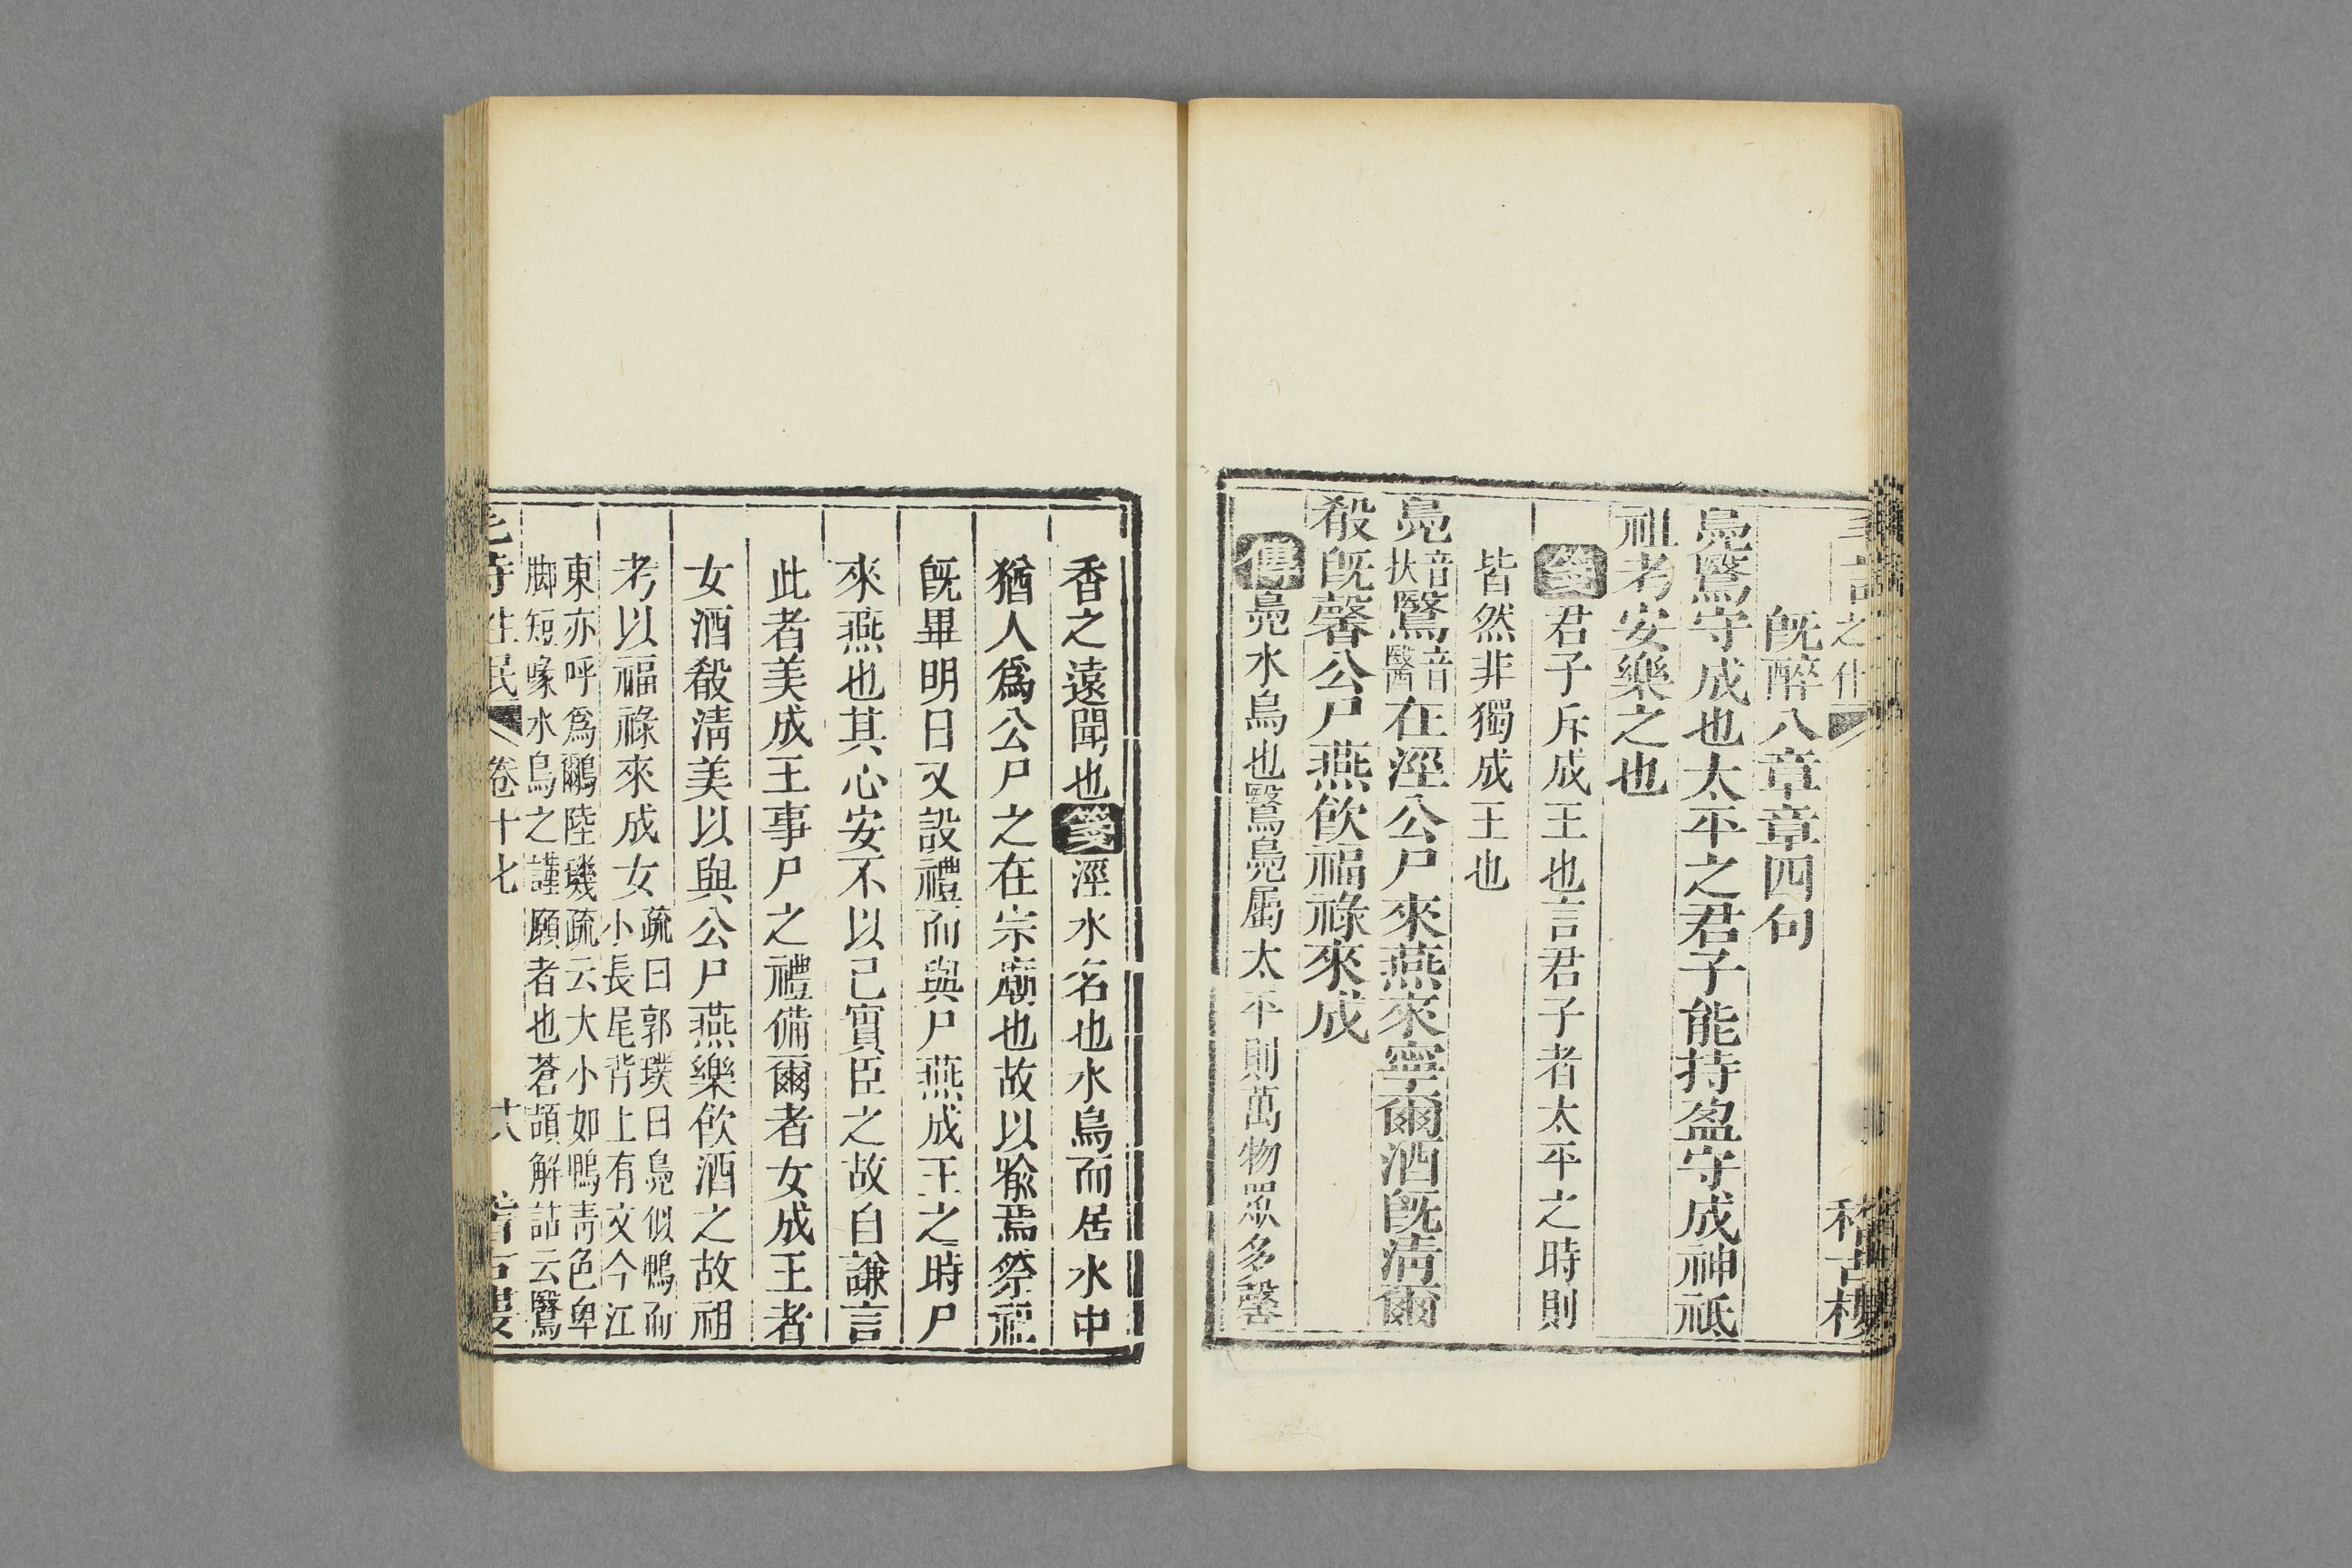 既醉八章章四句
鳧鷖守成也太平之君子能持盈守成神祗
祖考安樂之也
箋君子斥成王也言君子者太平之時則
皆然非獨成王也
鳧音扶鷖音鷖在涇公尸來燕來寧爾酒旣淸爾
殽旣馨公尸燕飮福祿來成
傳鳧水鳥也鷖鳧屬太平則萬物眾多馨
香之遠聞也箋涇水名也水鳥而居水中
猶人爲公尸之在宗廟也故以喩焉祭祀
旣畢明日又設禮而與尸燕成王之時尸
來燕也其心安不以己實臣之故自謙言
此者美成王事尸之禮備爾者女成王者
女酒殽淸美以與公尸燕樂飮酒之故祖
考以福祿來成女
疏曰郭璞曰鳧似鴨而
小長尾背上有文今江
東亦呼爲鸍陸璣疏云大小如鴨靑色卑
脚短喙水鳥之謹愿者也蒼頡解詁云鷖
卷十七